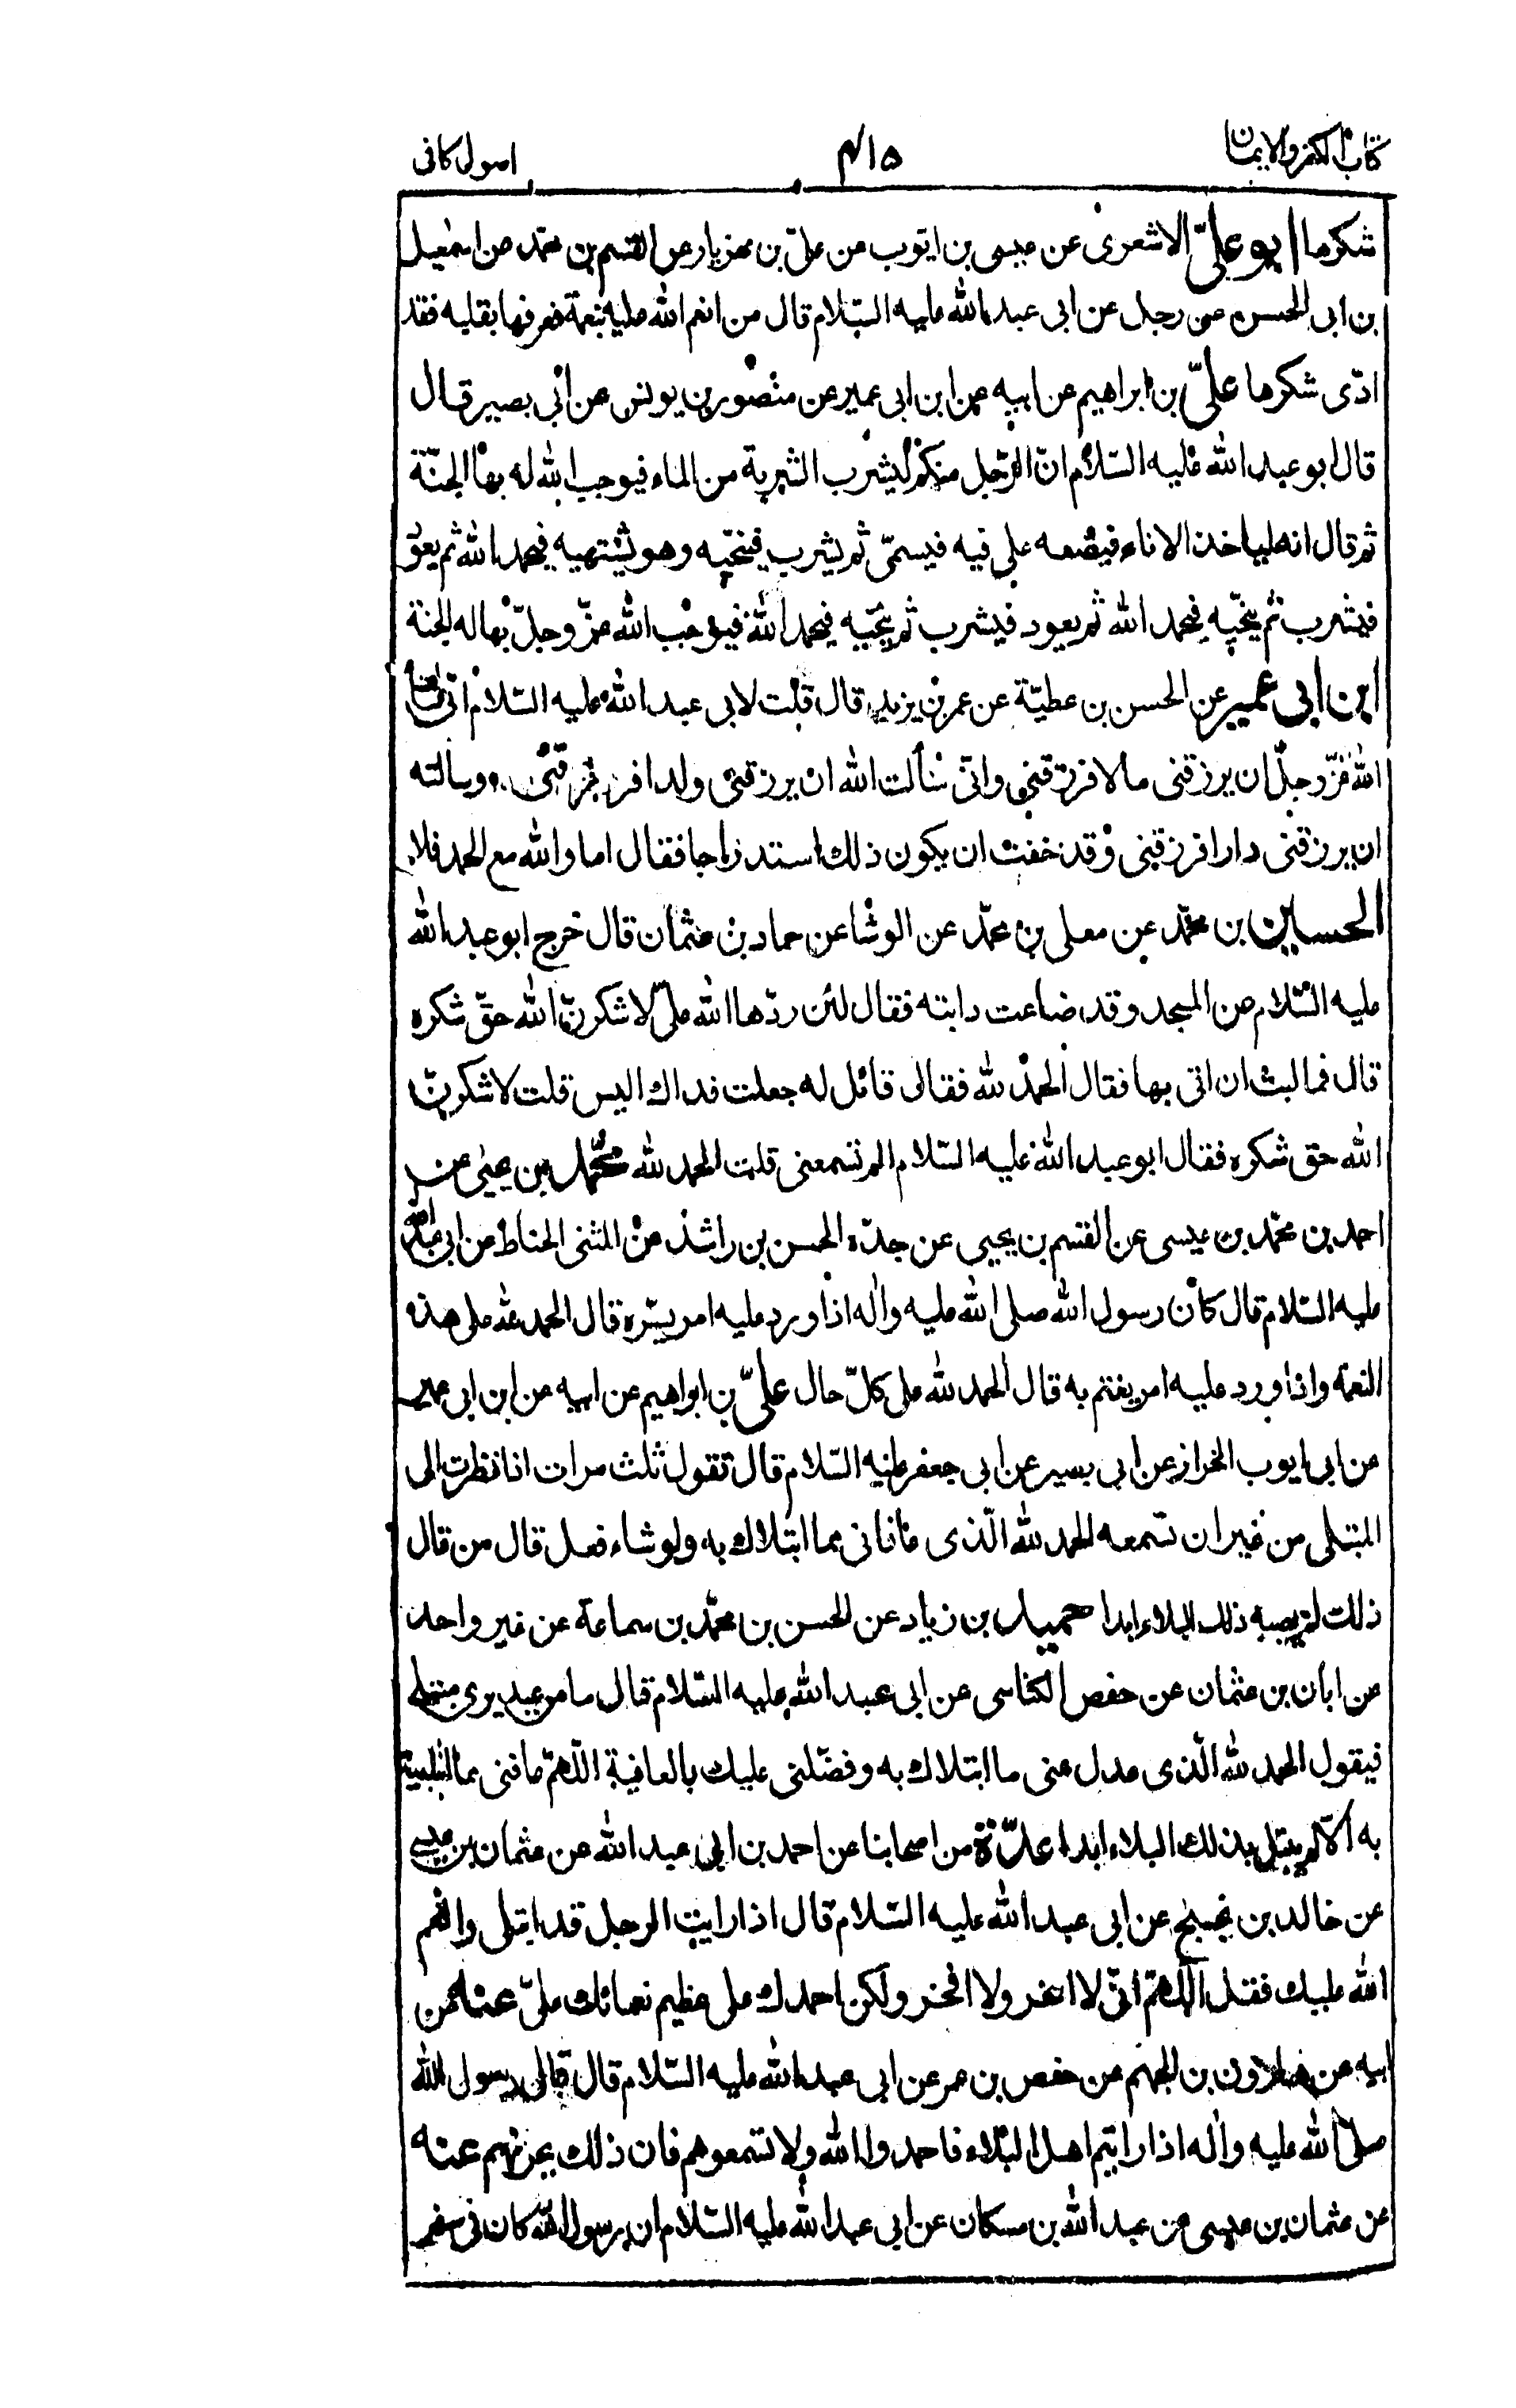 كتاب الكفر والايمان ۴۱۵ اصول كافى
شكرها ابو علىّ الاشعرى عن عيسى بن ايّوب عن علىّ بن مهزيار عن القسم بن محمّد عن اسمٰعيل
بن ابى الحسن عن رجل عن ابى عبد الله عليه السّلام قال من انعم الله عليه بنعمة فعرفها بقلبه فقد
ادّى شكرها علىّ بن ابراهيم عن ابيه عن ابن ابى عمير عن منصور بن يونس عن ابى بصير قال
قال ابو عبد الله عليه السّلام انّ الرّجل منكم ليشرب الشربة من الماء فيوجب الله له بها الجنّة
ثم قال انه لياخذ الاناء فيضعه على فيه فيسمّى ثم يشرب فينحّيه وهو يشتهيه فيحمد الله ثم يعود
فيشرب ثم ينحّيه فيحمد الله ثم يعود فيشرب ثم ينحّيه فيحمد الله فيوجب الله عزّ وجلّ بها له الجنة
ابن ابى عمير عن الحسن بن عطيّة عن عمر بن يزيد قال قلت لابى عبد الله عليه السّلام انّى سالت
الله عزّ وجلّ ان يرزقنى مالا فرزقنى وانّى سألت الله ان يرزقنى ولدا فرزقنى وسالته
ان يرزقنى دارا فرزقنى وقد خفت ان يكون ذلك استدراجا فقال اما والله مع الحمد فلا
الحسين بن محمّد عن معلى بن محمّد عن الوشا عن حماد بن عثمان قال خرج ابو عبد الله
عليه السّلام من المسجد وقد ضاعت دابته فقال لئن ردّها الله علىّ لاشكرنّ الله حقّ شكره
قال فما لبث ان اتى بها فقال الحمد لله فقال قائل له جعلت فداك اليس قلت لاشكرنّ
الله حق شكره فقال ابو عبد الله عليه السّلام الم تسمعنى قلت الحمد لله محمّد بن يحيى عن
احمد بن محمّد بن عيسى عن القسم بن يحيى عن جدّه الحسن بن راشد عن المثنى الحناط عن ابى عبد الله
عليه السّلام قال كان رسول الله صلى الله عليه واله اذا ورد عليه امر يسّره قال الحمد لله على هذه
النعمة واذا ورد عليه امر يغتم به قال الحمد لله على كلّ حال علىّ بن ابراهيم عن ابيه عن ابن ابى عمير
عن ابى ايوب الخراز عن ابى بصير عن ابى جعفر عليه السّلام قال تقول ثلث مرات اذا نظرت الى
المبتلى من غير ان تسمعه الحمد لله الّذى عافانى مما ابتلاك به ولو شاء فعل قال من قال
ذلك لم يصبه ذلك البلاء ابدا حميد بن زياد عن الحسن بن محمّد بن سماعة عن غير واحد
عن ابان بن عثمان عن حفص الكناسى عن ابى عبد الله عليه السّلام قال ما من عبد يرى مبتلى
فيقول الحمد لله الّذى عدل عنى ما ابتلاك به وفضّلنى عليك بالعافية اللّهمّ عافنى مما ابتليته
به الّا لم يبتل بذلك البلاء ابدا عدّة من اصحابنا عن احمد بن ابى عبد الله عن عثمان بن عيسى
عن خالد بن نجيح عن ابى عبد الله عليه السّلام قال اذا رايت الرجل قد ابتلى وانعم
الله عليك فقل اللّهمّ انّى لا اسخر ولا افخر ولكن احمدك على عظيم نعمائك علىّ عنه عن
ابيه عن هارون بن الجهم عن حفص بن عمر عن ابى عبد الله عليه السّلام قال قال رسول الله
صلى الله عليه واله اذا رايتم اهل البلاء فاحمدوا الله ولا تسمعوهم فان ذلك يحزنهم عنه
عن عثمان بن عيسى عن عبد الله بن مسكان عن ابى عبد الله عليه السّلام ان رسول الله كان فى سفر